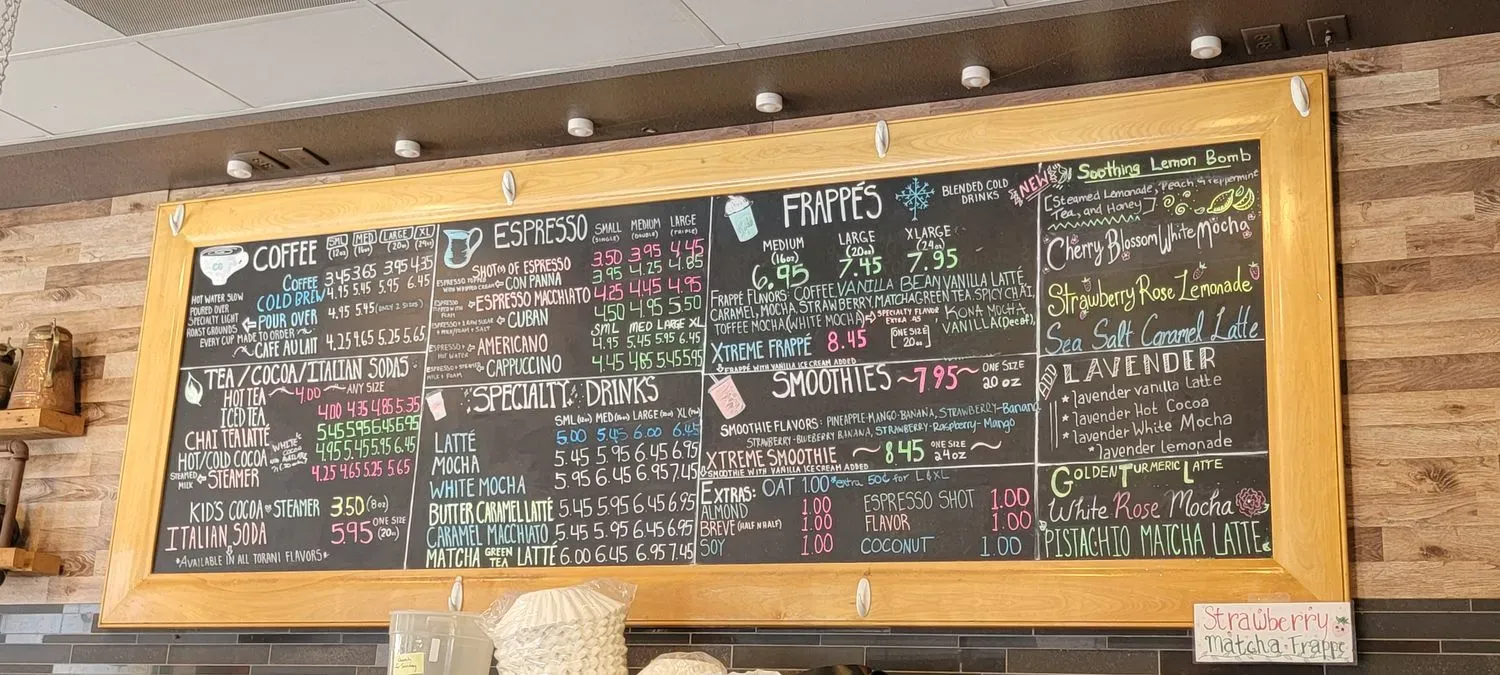 COFFEE SML (12oz) MED (16oz) LARGE (20oz) XL (24oz)
COFFEE 3.45 3.65 3.95 4.35
COLD BREW 4.75 5.45 5.95 6.45
HOT WATER SLOW
POURED OVER
SPECIALTY LIGHT
ROAST GROUNDS
POUR OVER 4.95 5.45 (ONLY 2 SIZES)
EVERY CUP MADE TO ORDER
CAFE AU LAIT 4.25 4.65 5.25 5.65
TEA/COCOA/ITALIAN SODAS
HOT TEA 4.00 ANY SIZE
ICED TEA 4.00 4.35 4.85 5.35
CHAI TEA LATTÉ 5.45 5.95 6.45 6.95
HOT/COLD COCOA 4.95 5.45 5.95 6.45
WHITE COCOA AVAILABLE
STEAMED MILK STEAMER 4.25 4.65 5.25 5.65
KIDS COCOA STEAMER 3.50 (8oz)
ITALIAN SODA 5.95 ONE SIZE (20oz)
*AVAILABLE IN ALL TORANI FLAVORS*
ESPRESSO SMALL (SINGLE) MEDIUM (DOUBLE) LARGE (TRIPLE)
SHOT(S) OF ESPRESSO 3.50 3.95 4.45
ESPRESSO TOPPED WITH WHIPPED CREAM CON PANNA 3.95 4.25 4.85
ESPRESSO MACCHIATO 4.25 4.45 4.95
CUBAN 4.50 4.95 5.50
SML MED LARGE XL
ESPRESSO + HOT WATER AMERICANO 4.95 5.45 5.95 6.45
ESPRESSO + STEAMED MILK + FOAM CAPPUCCINO 4.45 4.85 5.45 5.95
SPECIALTY DRINKS
SML (12oz) MED (16oz) LARGE (20oz) XL (24oz)
LATTÉ 5.00 5.45 6.00 6.45
MOCHA 5.45 5.95 6.45 6.95
WHITE MOCHA 5.95 6.95 6.95 7.45
BUTTER CARAMEL LATTÉ 5.45 5.95 6.45 6.95
CARAMEL MACCHIATO 5.45 5.95 6.45 6.95
MATCHA GREEN TEA LATTÉ 6.00 6.45 6.95 7.45
FRAPPÉS BLENDED COLD
DRINKS
MEDIUM (16oz) LARGE (20oz) XLARGE (24oz)
6.95 7.45 7.95
FRAPPÉ FLAVORS: COFFEE VANILLA BEAN VANILLA LATTÉ
CARAMEL, MOCHA, STRAWBERRY, MATCHA GREEN TEA, SPICY CHAI,
TOFFEE MOCHA (WHITE MOCHA) SPECIALTY FLAVOR EXTRA .45 KONA MOCHA,
VANILLA (Decaf)
XTREME FRAPPÉ 8.45 [ONE SIZE 20oz]
FRAPPÉ WITH VANILLA ICE CREAM ADDED
SMOOTHIES ~7.95~ ONE SIZE
20 oz
SMOOTHIE FLAVORS: PINEAPPLE-MANGO-BANANA, STRAWBERRY-Banana
STRAWBERRY-BLUEBERRY BANANA, STRAWBERRY-Raspberry-Mango
XTREME SMOOTHIE ~ 8.45 ONE SIZE 24oz ~
SMOOTHIE WITH VANILLA ICE CREAM ADDED
EXTRAS: OAT 1.00 *extra 50¢ for L & XL
ALMOND 1.00 ESPRESSO SHOT 1.00
BREVE (HALF N HALF) 1.00 FLAVOR 1.00
SOY 1.00 COCONUT 1.00
NEW
Soothing Lemon Bomb
[Steamed Lemonade, Peach & Peppermint
Tea, and Honey]
Cherry Blossom White Mocha
Strawberry Rose Lemonade
Sea Salt Caramel Latte
LAVENDER
*lavender vanilla latte
*lavender Hot Cocoa
*lavender White Mocha
*lavender lemonade
GOLDEN TURMERIC LATTE
White Rose Mocha
PISTACHIO MATCHA LATTE
Strawberry
Matcha Frappe